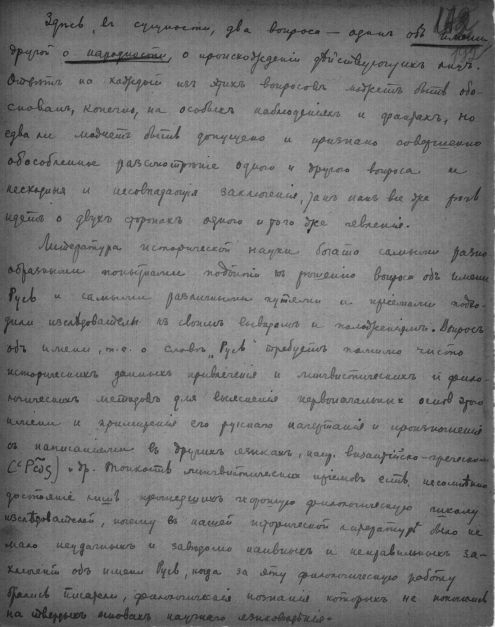 Здесь, в сущности, два вопроса — один объ имени
другой о народности, о происхожденiи дѣйствующихъ лицъ.
Отвѣтъ на каждый изъ этихъ вопросовъ можетъ быть обо-
снованъ, конечно, на особыхъ наблюденiяхъ и фактахъ, но
едва ли можетъ быть допущено и признано совершенно
обособленное разсмотрѣнiе одного и другого вопроса и
несходныя и несовпадающiя заключенiя, такъ какъ все же рѣчь
идетъ о двухъ сторонахъ одного и того же явленiя.
Литература исторической науки богата самыми разно
образными попытками подойти къ рѣшенiю вопроса объ имени
Русь и самыми различными путями и прiемами подхо-
дили изслѣдователи къ своимъ выводамъ и положенiямъ. Вопросъ
объ имени, т.е. о словѣ „Русь" требуетъ помимо чисто
историческихъ данныхъ привлеченiя и лингвистическихъ и фило-
логическихъ методовъ для выясненiя первоначальныхъ основъ этого
имени и его русскаго начертанiя и произношенiя
съ написанiями въ другихъ языкахъ, напр. византiйско-греческомъ
(с Ρῶς) и др. Тонкость лингвистическихъ прiемовъ есть, несомнѣнно
достоянiе лишь прошедшихъ хорошую филологическую школу
изслѣдователей, почему въ нашей исторической литературѣ было не
мало неудачныхъ и заведомо наивныхъ и неправильныхъ за-
ключенiй объ имени Русь, когда за эту филологическую работу
брались писатели, филологическiя познанiя которыхъ не покоились
на твердыхъ основахъ научнаго языковѣдѣнiя.